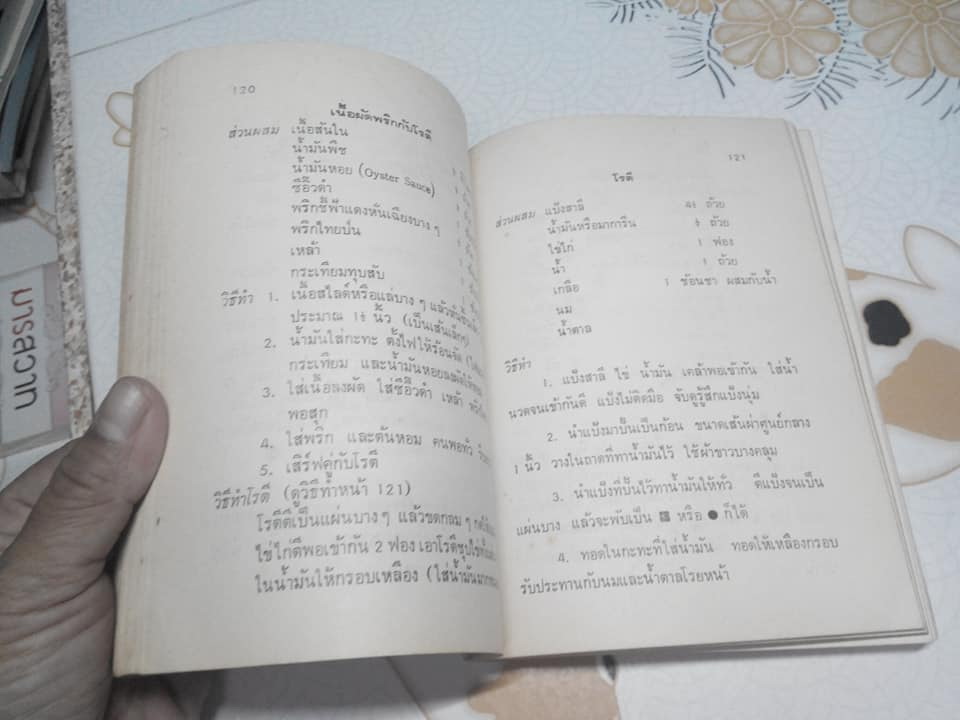 120
เนื้อผัดพริกกับโรตี
ส่วนผสม เนื้อสันใน
น้ำมันพืช
น้ำมันหอย (Oyster Sauce)
ซีอิ๊วดำ
พริกชี้ฟ้าแดงหั่นเฉียงบาง ๆ
พริกไทยป่น
เหล้า
กระเทียมทุบสับ
วิธีทำ 1. เนื้อสไลด์หรือแล่บาง ๆ แล้วหั่นชิ้นเล็ก
ประมาณ 1½ นิ้ว (เป็นเส้นเล็กๆ)
2. น้ำมันใส่กะทะ ตั้งไฟให้ร้อนจัด
กระเทียม และน้ำมันหอยลงผัดให้หอม
3. ใส่เนื้อลงผัด ใส่ซีอิ๊วดำ เหล้า
พอสุก
4. ใส่พริก และต้นหอม คนพอทั่ว
5. เสิร์ฟคู่กับโรตี
วิธีทำโรตี (ดูวิธีทำหน้า 121)
โรตีตีเป็นแผ่นบางๆ แล้วขดกลม ๆ
ไข่ไก่ตีพอเข้ากัน 2 ฟอง เอาโรตีชุบไข่
ในน้ำมันให้กรอบเหลือง (ใส่น้ำมันมาก
121
โรตี
ส่วนผสม แป้งสาลี 4½ ถ้วย
น้ำมันหรือมาการีน ½ ถ้วย
ไข่ไก่ 1 ฟอง
น้ำ 1 ถ้วย
เกลือ 1 ช้อนชา ผสมกับน้ำ
นม
น้ำตาล
วิธีทำ
1. แป้งสาลี ใส่ น้ำมัน เคล้าพอเข้ากัน ใส่น้ำ
นวดจนเข้ากันดี แป้งไม่ติดมือ จับดูรู้สึกแป้งนุ่ม
2. นำแป้งมาปั้นเป็นก้อน ขนาดเส้นผ่าศูนย์กลาง
1 นิ้ว วางในถาดที่ทาน้ำมันไว้ ใช้ผ้าขาวบางคลุม
3. นำแป้งที่ปั้นไว้ทาน้ำมันให้ทั่ว ตีแป้งจนเป็น
แผ่นบาง แล้วจะพับเป็น หรือ ● ก็ได้
4. ทอดในกะทะที่ใส่น้ำมัน ทอดให้เหลืองกรอบ
รับประทานกับนมและน้ำตาลโรยหน้า
มารสวาท